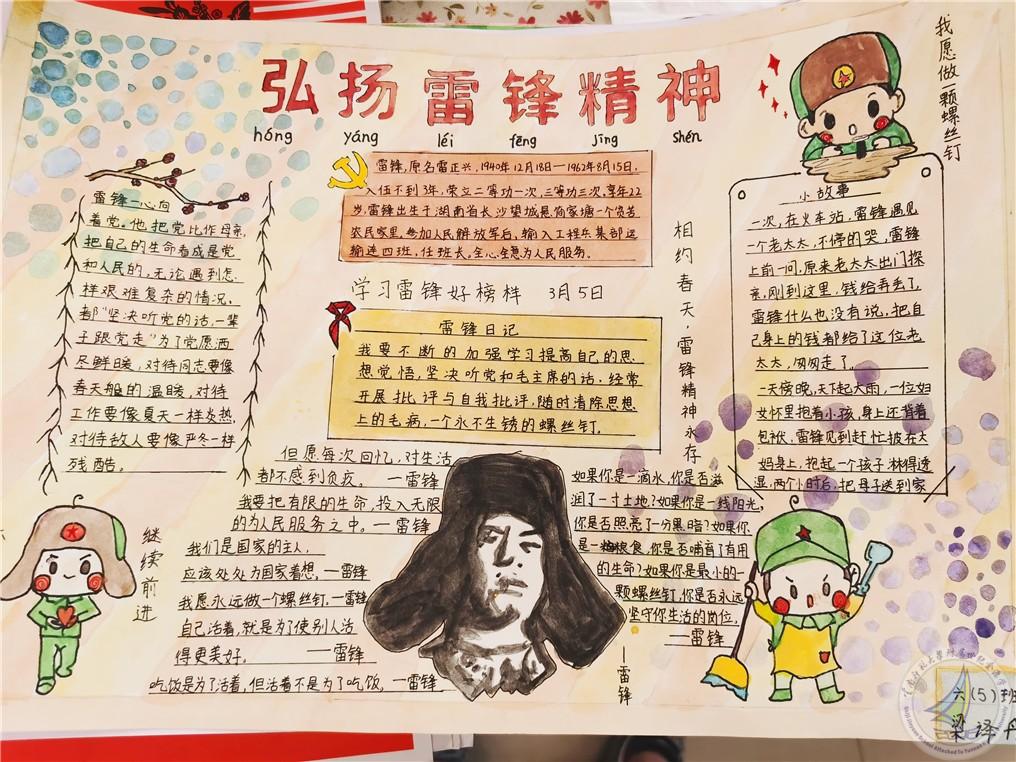 弘扬雷锋精神
hóng yáng léi fēng jīng shén
我愿做一颗螺丝钉
雷锋,原名雷正兴,1940年12月18日—1962年8月15日.
入伍不到3年,荣立二等功一次,三等功三次,享年22
岁,雷锋出生于湖南省长沙望城县简家塘一个贫苦
农民家里,参加人民解放军后,输入工程兵某部运
输连四班,任班长,全心全意为人民服务。
雷锋一心向
着党。他把党比作母亲,
把自己的生命看成是党
和人民的,无论遇到怎
样艰难复杂的情况,
都"坚决听党的话,一辈
子跟党走"为了党愿洒
尽鲜血,对待同志要像
春天般的温暖,对待
工作要像夏天一样炎热,
对待敌人要像严冬一样
残酷。
学习雷锋好榜样 3月5日
雷锋日记
我要不断的加强学习提高自己的思
想觉悟,坚决听党和毛主席的话.经常
开展批评与自我批评,随时清除思想
上的毛病,一个永不生锈的螺丝钉.
相约春天·雷锋精神永存
小故事
一次,在火车站,雷锋遇见
一个老太太,不停的哭,雷锋
上前一问,原来老太太出门探
亲,刚到这里,钱给弄丢了,
雷锋什么也没有说,把自
己身上的钱都给了这位老
太太,匆匆走了
一天傍晚,天下起大雨,一位妇
女怀里抱着小孩,身上还背着
包袱,雷锋见到赶忙披在大
妈身上,抱起一个孩子,淋得透
湿,两个小时后,把母子送到家
但愿每次回忆,对生活
都不感到负疚。—雷锋
我要把有限的生命,投入无限
的为人民服务之中。—雷锋
我们是国家的主人,
应该处处为国家着想。—雷锋
我愿永远做一个螺丝钉。—雷锋
自己活着,就是为了使别人活
得更美好。—雷锋
吃饭是为了活着,但活着不是为了吃饭。—雷锋
继续前进
如果你是一滴水,你是否滋
润了一寸土地?如果你是一线阳光,
你是否照亮了一分黑暗?如果你
是一粮食,你是否哺育了有用
的生命?如果你是最小的一
颗螺丝钉,你是否永远
坚守你生活的岗位,
—雷锋
—雷锋
六(5)班
梁译丹